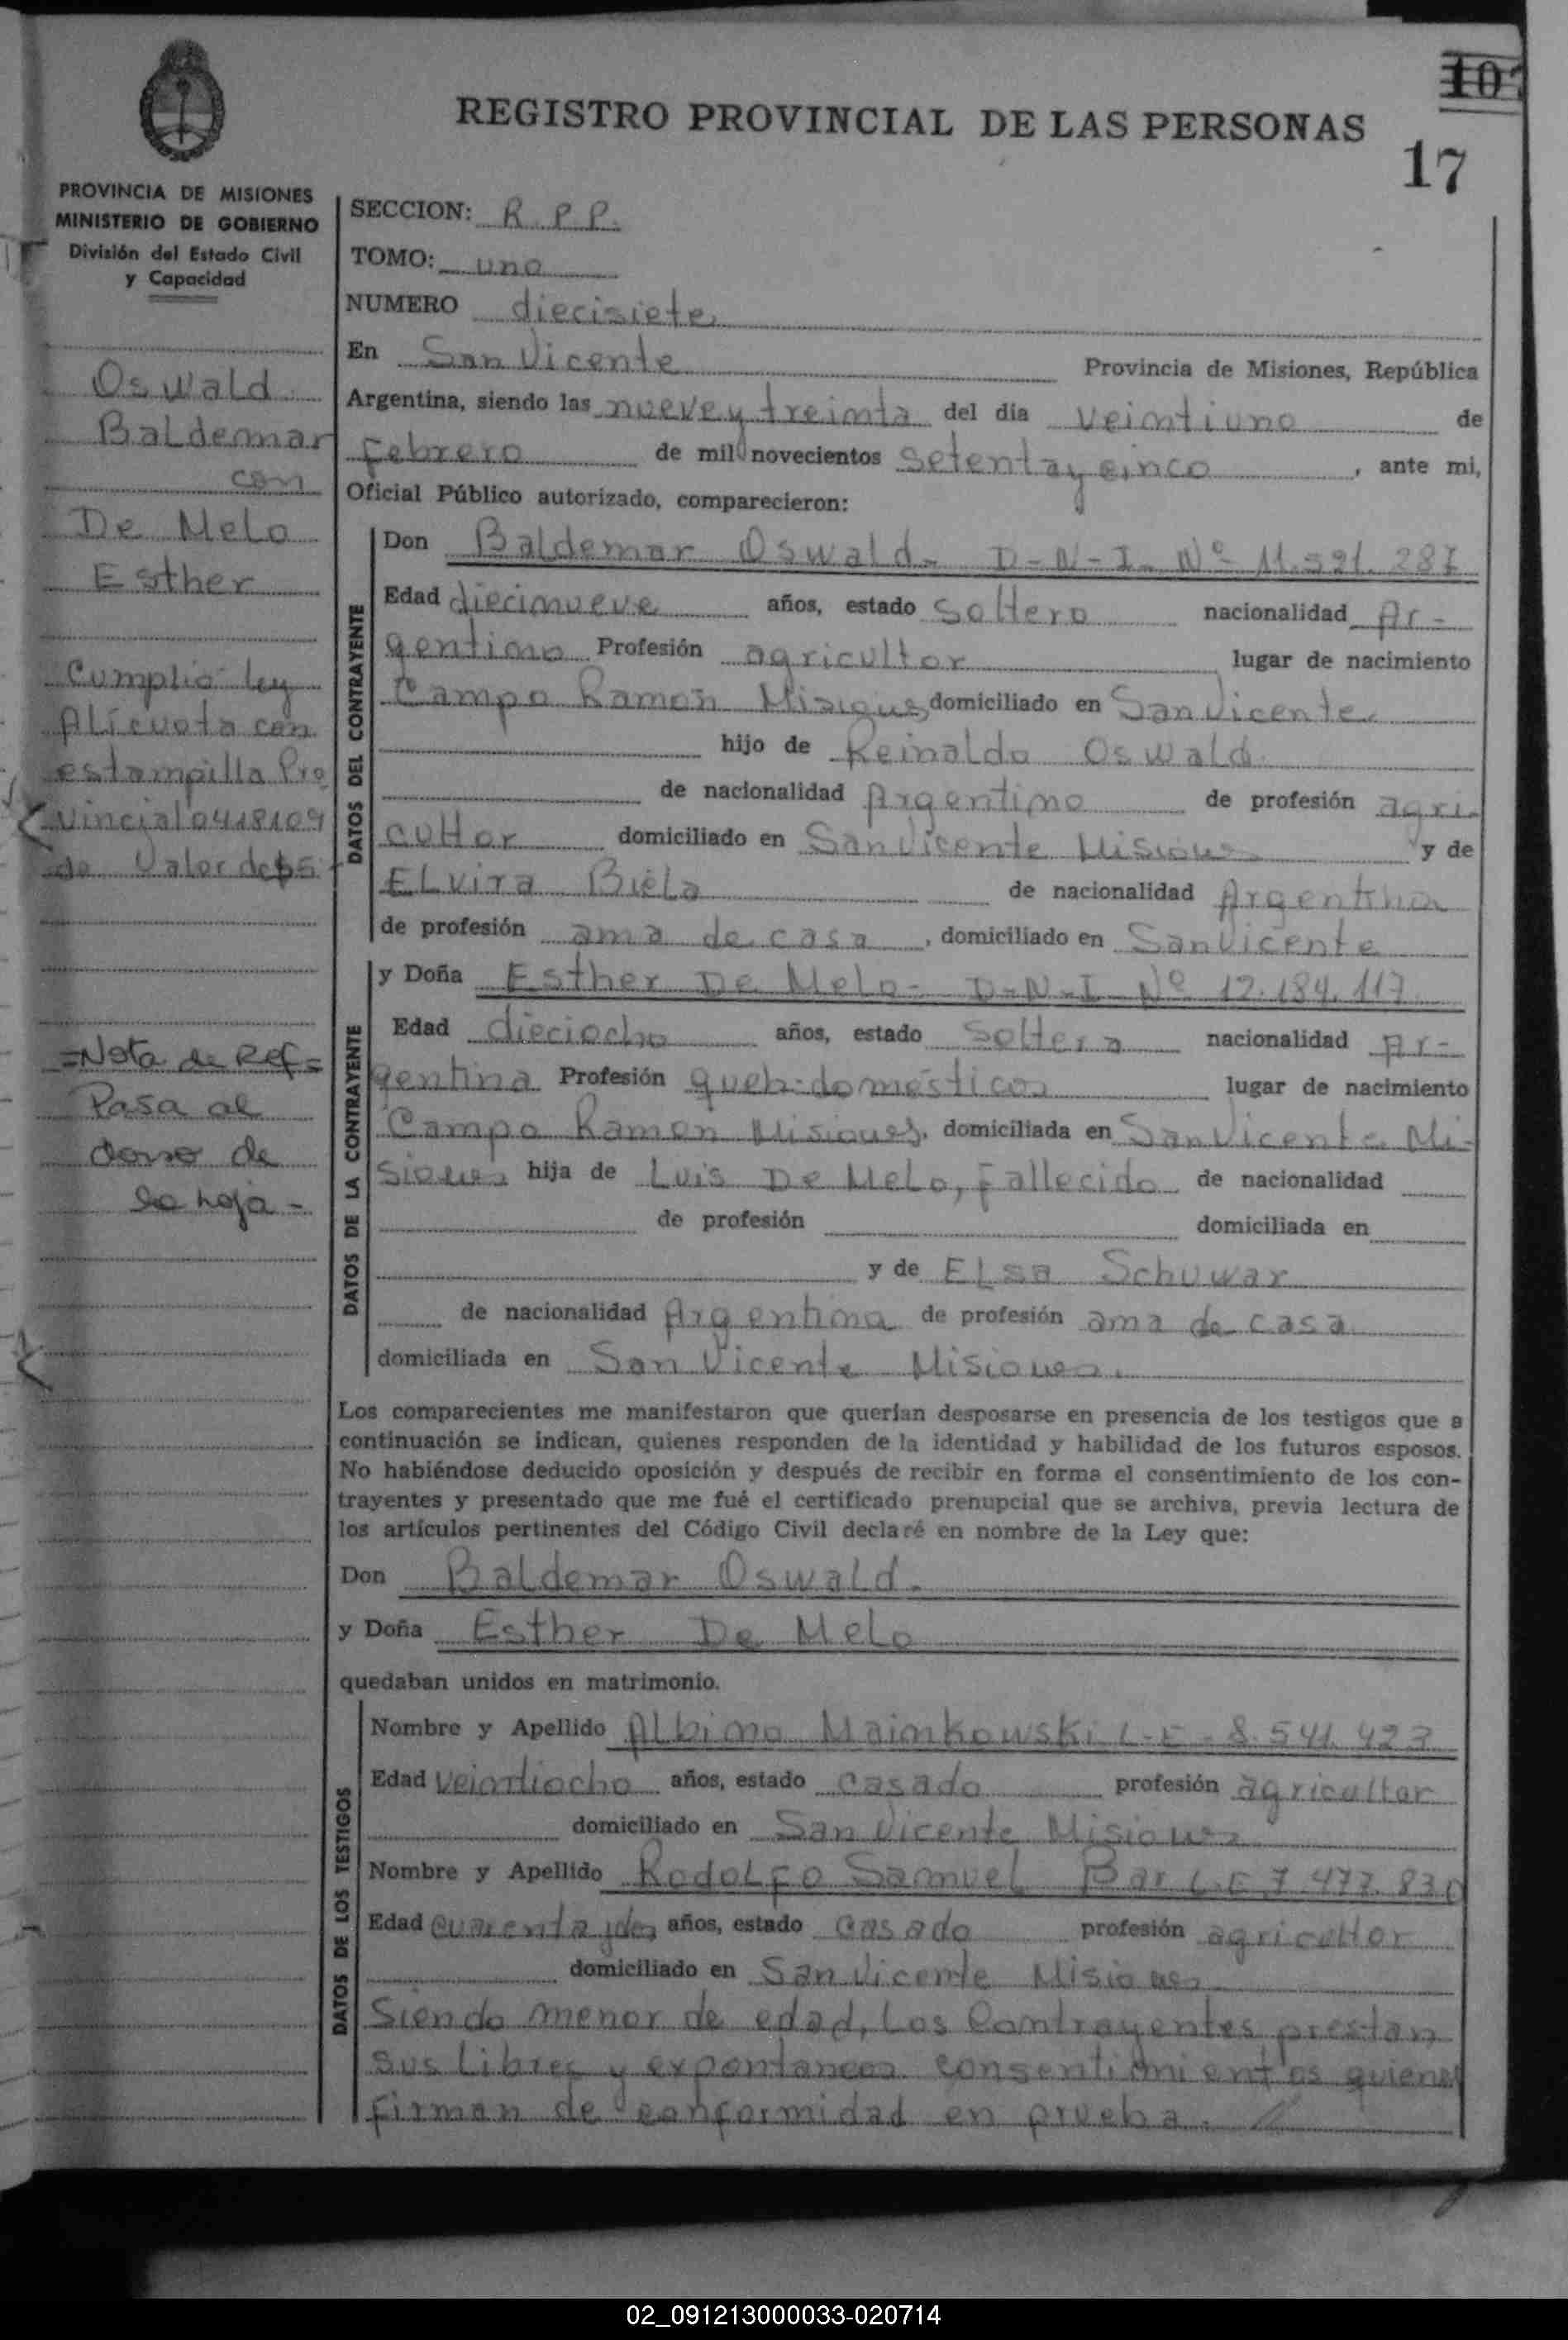 107
REGISTRO PROVINCIAL DE LAS PERSONAS
17
PROVINCIA DE MISIONES
MINISTERIO DE GOBIERNO
División del Estado Civil
y Capacidad
Oswald
Baldemar
con
De Melo
Esther
Cumplió ley
Alicuota con
estampilla Pro
vincial 0418109
de Valor de $5
=Nota de Ref=
Pasa al
dorso de
la hoja-
SECCION: R.P.P.
TOMO: uno
NUMERO diecisiete
En San Vicente Provincia de Misiones, República
Argentina, siendo las nueve y treinta del día veintiuno de
Febrero de mil novecientos setenta y cinco, ante mi,
Oficial Público autorizado, comparecieron:
DATOS DEL CONTRAYENTE
Don Baldemar Oswald- D-N-I- Nº 11.521.287
Edad diecinueve años, estado soltero nacionalidad Ar-
gentino Profesión agricultor lugar de nacimiento
Campo Ramon Misiones domiciliado en San Vicente
hijo de Reinaldo Oswald
de nacionalidad Argentino de profesión agri
cultor domiciliado en San Vicente Misiones y de
ELvira Biela de nacionalidad Argentina
de profesión ama de casa, domiciliado en San Vicente
DATOS DE LA CONTRAYENTE
y Doña Esther De Melo- D-N-I Nº 12.184.117
Edad dieciocho años, estado soltera nacionalidad Ar-
gentina Profesión queh-domésticos lugar de nacimiento
Campo Ramon Misiones, domiciliada en San Vicente Mi-
siones hija de Luis De Melo, Fallecido de nacionalidad
de profesión domiciliada en
y de ELsa Schuwar
de nacionalidad Argentina de profesión ama de casa
domiciliada en San Vicente Misiones.
Los comparecientes me manifestaron que querían desposarse en presencia de los testigos que a
continuación se indican, quienes responden de la identidad y habilidad de los futuros esposos.
No habiéndose deducido oposición y después de recibir en forma el consentimiento de los con-
trayentes y presentado que me fué el certificado prenupcial que se archiva, previa lectura de
los artículos pertinentes del Código Civil declaré en nombre de la Ley que:
Don Baldemar Oswald.
y Doña Esther De Melo
quedaban unidos en matrimonio.
DATOS DE LOS TESTIGOS
Nombre y Apellido ALbino Mainkowski L-E- 8.541.423
Edad veintiocho años, estado casado profesión agricultor
domiciliado en San Vicente Misiones
Nombre y Apellido RodoLFo Samuel Bar L.E 7.477.830
Edad cuarenta y dos años, estado casado profesión agricultor
domiciliado en San Vicente Misiones
Siendo menor de edad, Los Contrayentes prestan
sus Libres y expontaneos consentimientos quienes
firman de conformidad en prueba.
02_091213000033-020714